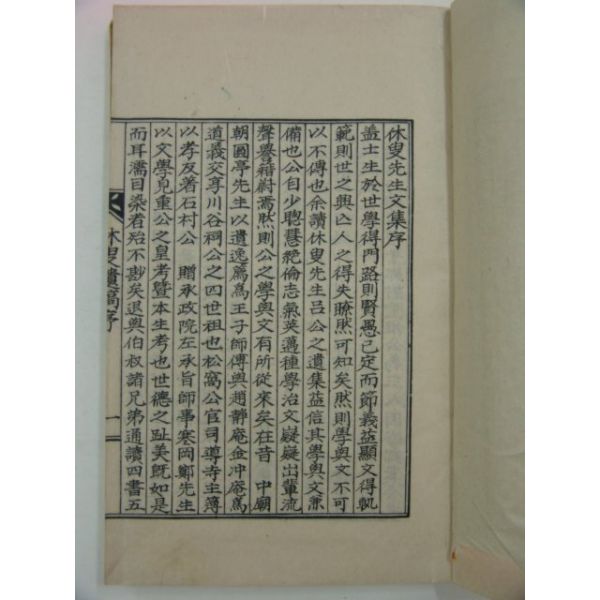 休叟先生文集序
盖士生於世學得門路則賢愚已定而節義益顯文得軌
範則世之興亾人之得失瞭然可知矣然則學與文不可
以不傳也余讀休叟先生呂公之遺集益信其學與文兼
備也公自少聰慧絶倫志氣英邁種學治文嶷嶷出輩流
聲譽藉蔚焉然則公之學與文有所從來矣在昔 中廟
朝圓亭先生以遺逸薦爲王子師傅與趙靜庵金冲庵爲
道義交享川谷祠公之四世祖也松窩公官司導寺主簿
以孝友著石村公 贈承政院左承旨師事寒岡鄭先生
以文學見重公之皇考曁本生考也世德之趾美旣如是
而耳濡目染者殆不尠矣退與伯叔諸兄弟通讀四書五
休叟遺稿序 一